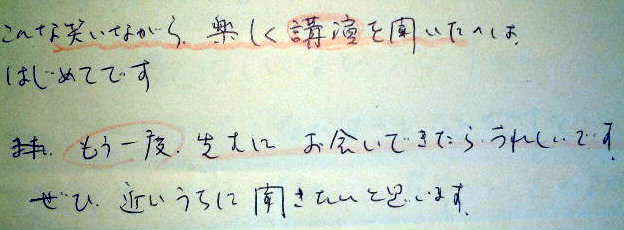 こんな笑いながら、楽しく講演を聞いたのは、
はじめてです
また、もう一度、先生に お会いできたら うれしいです。
ぜひ、近いうちに 聞きたいと思います。